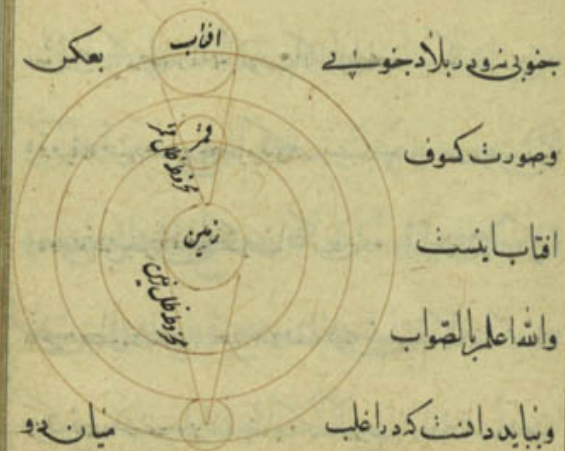 جنوبی نرود در بلاد جنوبی بعکس
وصورت کسوف
افتاب اینست
والله اعلم بالصواب
وبباید دانست که در اغلب میان دو
افتاب
قمر
مخروط ظل قمر
زمین
مخروط ظل زمین